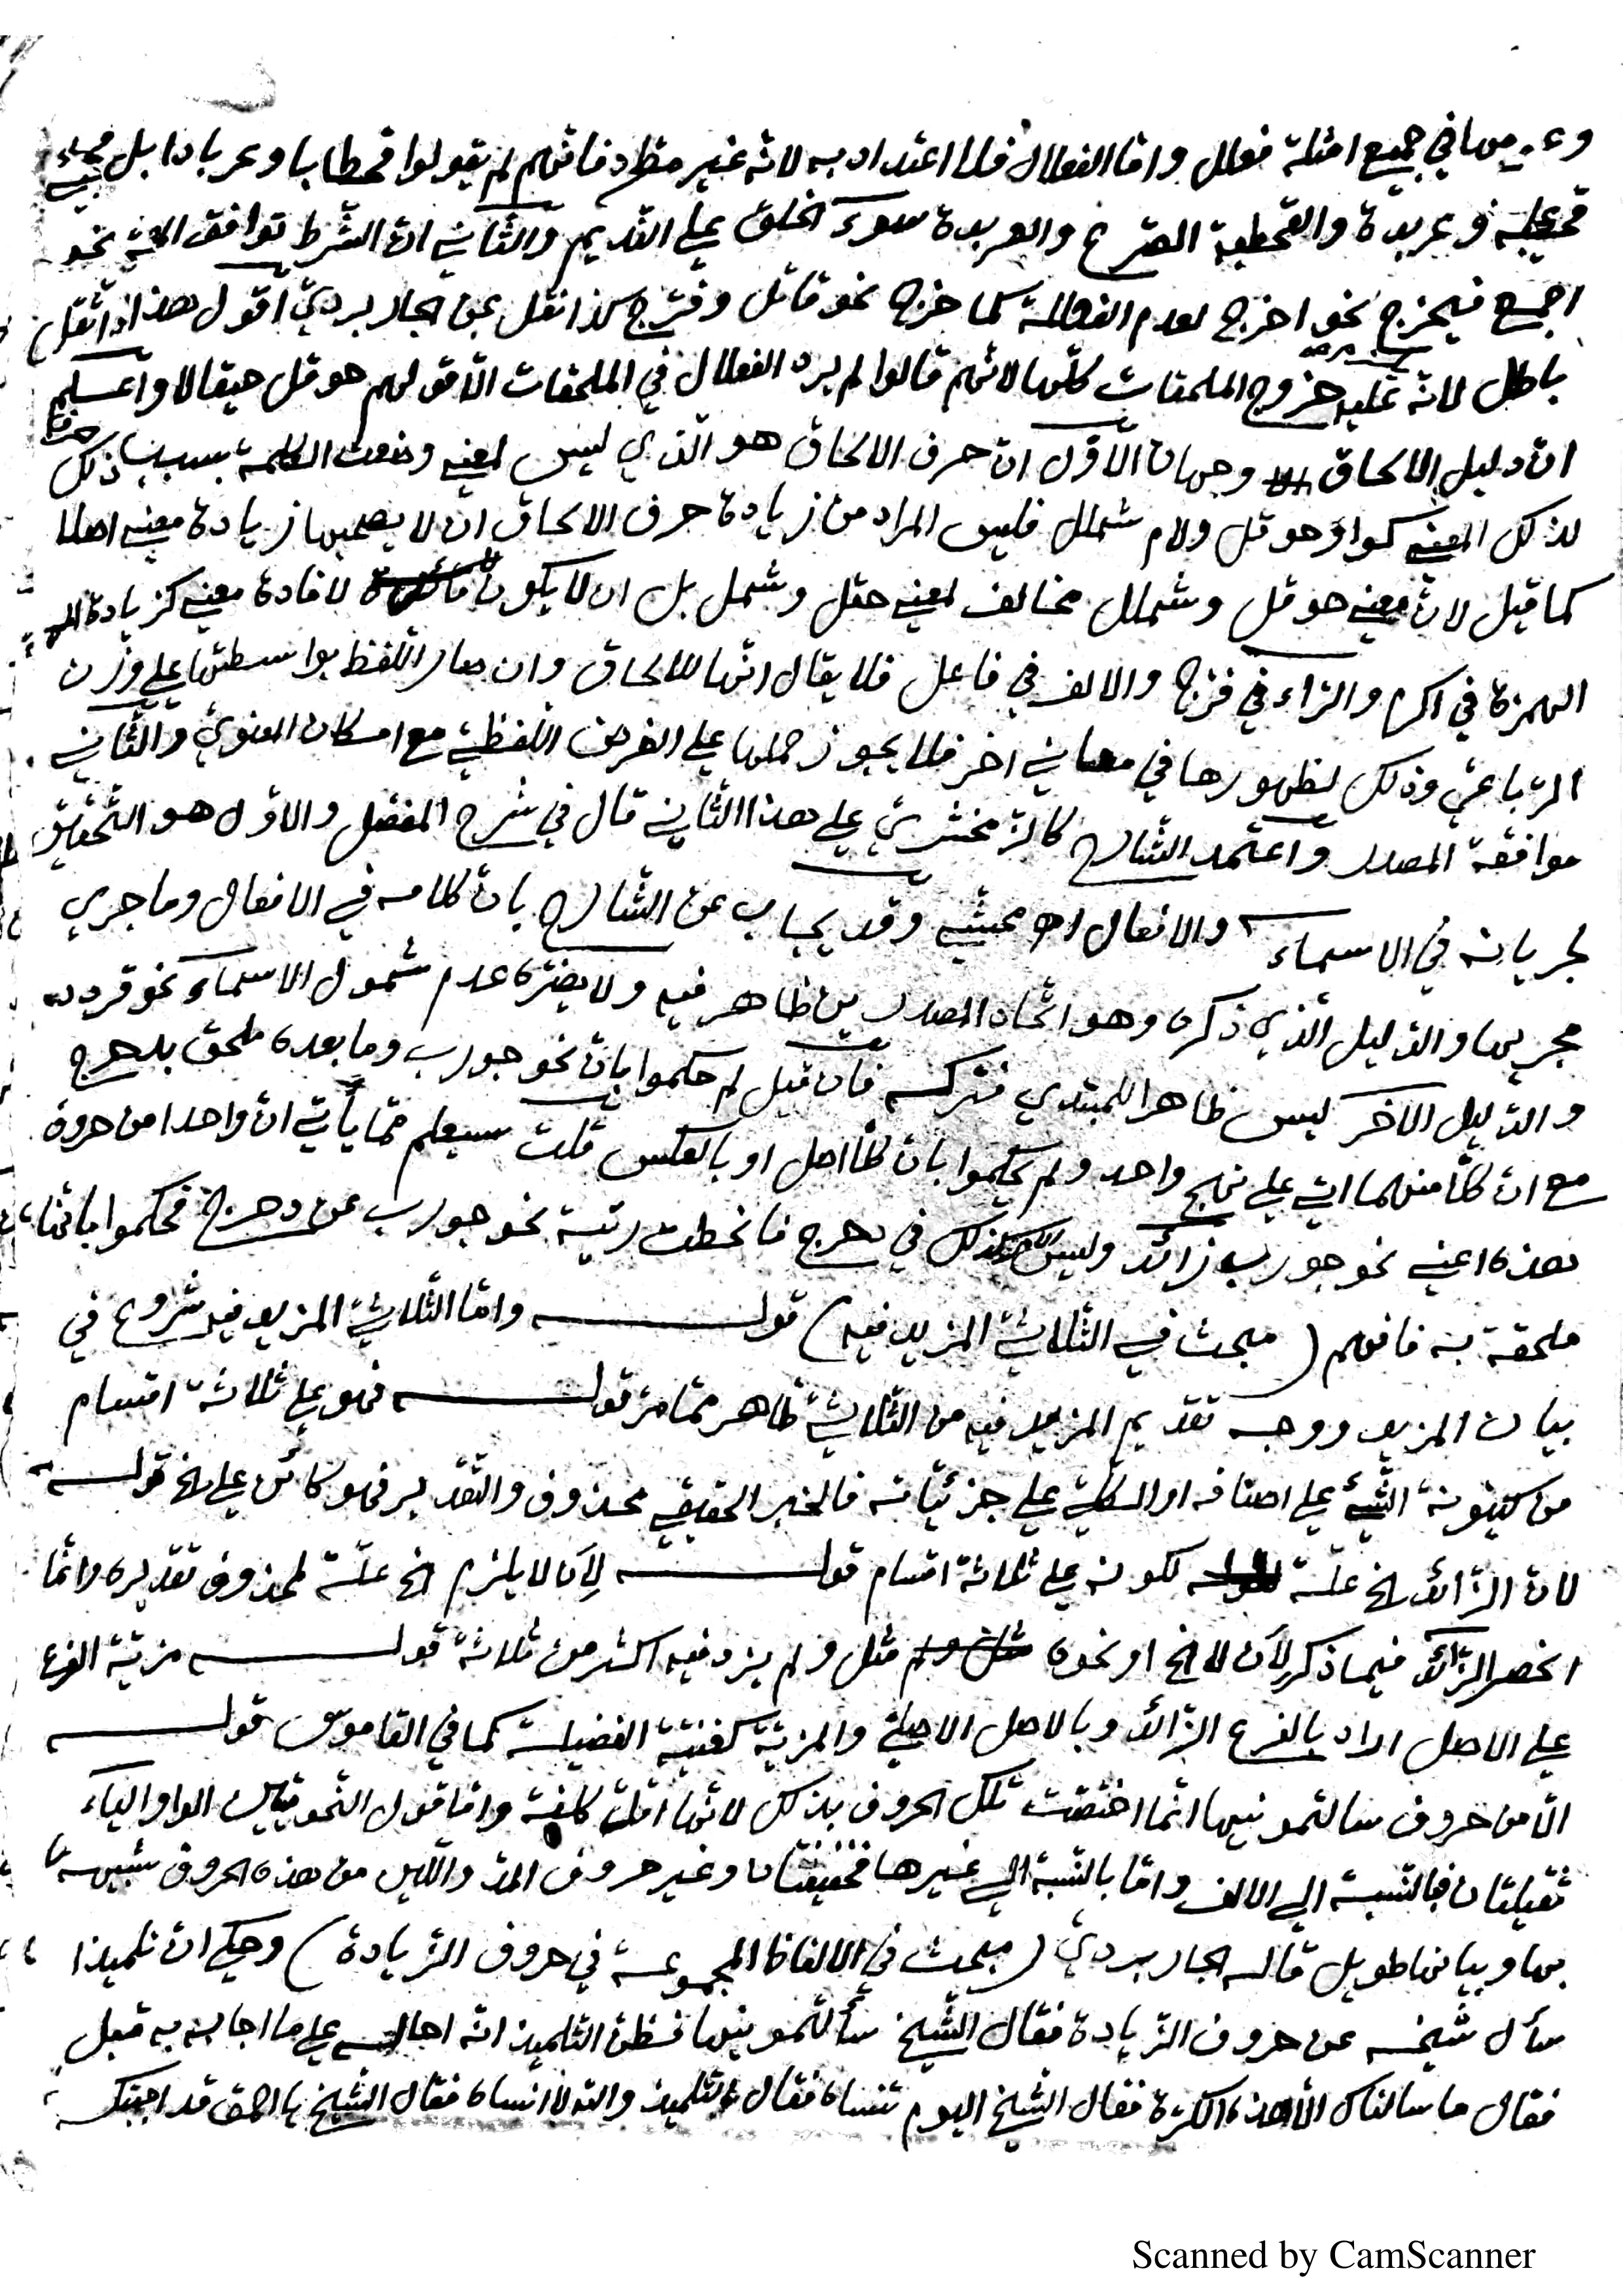 في جميع امثلة فعلل وامّا الفعلال فلا اعتداد به لانّه غير مطّرد فانّهم لم يقولوا قحطابا وعربادا بل مجيئه
قحطبة وعربدة والقحطبة الصّرع والعربدة سوء الخلق على النّديم والثّاني انّ الشّرط توافق نحو
اجمع فيخرج نحو اخرج لعدم الفعللة كما خرج نحو قاتل وفرّج كذا نقل عن الجاربرديّ اقول هذا
باطل لانّه عليه خروج الملحقات كلّها لانّهم قالوا لم يرد الفعلال في الملحقات الّا قولهم حوقل حيقالا واعلم
انّ دليل الالحاق وجهان الاوّل انّ حرف الالحاق هو الّذي ليس لمعنى وضعت الكلمة بسبب ذلك
لذلك المعنى كواو حوقل ولام شملل فليس المراد من زيادة حرف الالحاق ان لا يصحبها زيادة معنى اصلا
كما قيل لانّ معنى حوقل وشملل مخالف لمعنى حقل وشمل بل ان لا يكون لافادة معنى كزيادة
الهمزة في اكرم والرّاء في فرّج والالف في فاعل فلا يقال انّها للالحاق وان صار اللّفظ بواسطتها على وزن
الرّباعيّ وذلك لظهورها في معاني اخر فلا يجوز حملها على الغرض اللّفظيّ مع امكان المعنويّ والثّاني
موافقة المصدر واعتمد الشّارح كالزّمخشريّ على هذا الثّاني قال في شرح المفصّل والاوّل هو التّحقيق
لجريانه في الاسماء والافعال اه محشّي وقد يجاب عن الشّارح بانّ كلامه في الافعال وما جرى
مجريها والدّليل الّذي ذكره وهو اتّحاد المصدرين ظاهر فيه ولا يضرّه عدم شمول الاسماء نحو قردد
والدّليل الآخر ليس ظاهرا للمبتدي فتركه فان قيل لم حكموا بانّ نحو جورب وما بعده ملحق بدحرج
مع انّ كلّا منهما اتى على نهج واحد ولم يحكموا بانّ كلّا اصل او بالعكس قلت سيعلم ممّا يأتي انّ واحدا من حروف
هذه اعني نحو جورب زائد وليس كذلك في دحرج فانحطت رتبة نحو جورب عن دحرج فحكموا بانّها
ملحقة به فافهم (مبحث في الثّلاثيّ المزيد فيه) قولـه وامّا الثّلاثيّ المزيد فيه شروع في
بيان المزيد ووجه تقديم المزيد فيه من الثّلاثيّ ظاهر ممّا مرّ قولـه فهو على ثلاثة اقسام
من كينونة الشّيء على اصنافه او الكلّيّ على جزئيّاته فالخبر الحقيقي محذوف والتّقدير فهو كائن على الخ قولـه
لانّ الزّائد الخ علّة لكونه على ثلاثة اقسام قولـه لئلا يلزم الخ علّة لمحذوف تقديره وانّما
انحصر الزّائد فيما ذكر لئلا الخ او نحوه مثل ولم يزد فيه اكثر من ثلاثة قولـه مزيّة الفرع
على الاصل اراد بالفرع الزّائد وبالاصل الاصليّ والمزيّة كغنيّة الفضيلة كما في القاموس قولـه
الّا من حروف سالتمونيها انّما اختصّت تلك الحروف بذلك لانّها اقلّ كلفة وامّا قول النّحويّين الواو والياء
ثقيلتان فبالنّسبة الى الالف وامّا بالنّسبة الى غيرها فخفيفتان وغير حروف المدّ واللّين من هذه الحروف شبيهة
بها وبيانها طويل قاله الجاربرديّ (مبحث في الالفاظ المجموعة في حروف الزّيادة) وحكي انّ تلميذا
سأل شيخه عن حروف الزّيادة فقال الشّيخ سألتمونيها فظنّ التّلميذ انّه احاله على ما اجابه به قبل
فقال ما سالناك الّا هذه الكرّة فقال الشّيخ اليوم تنساه فقال التّلميذ والله لا انساه فقال الشّيخ يا احمق قد اجبتك
Scanned by CamScanner